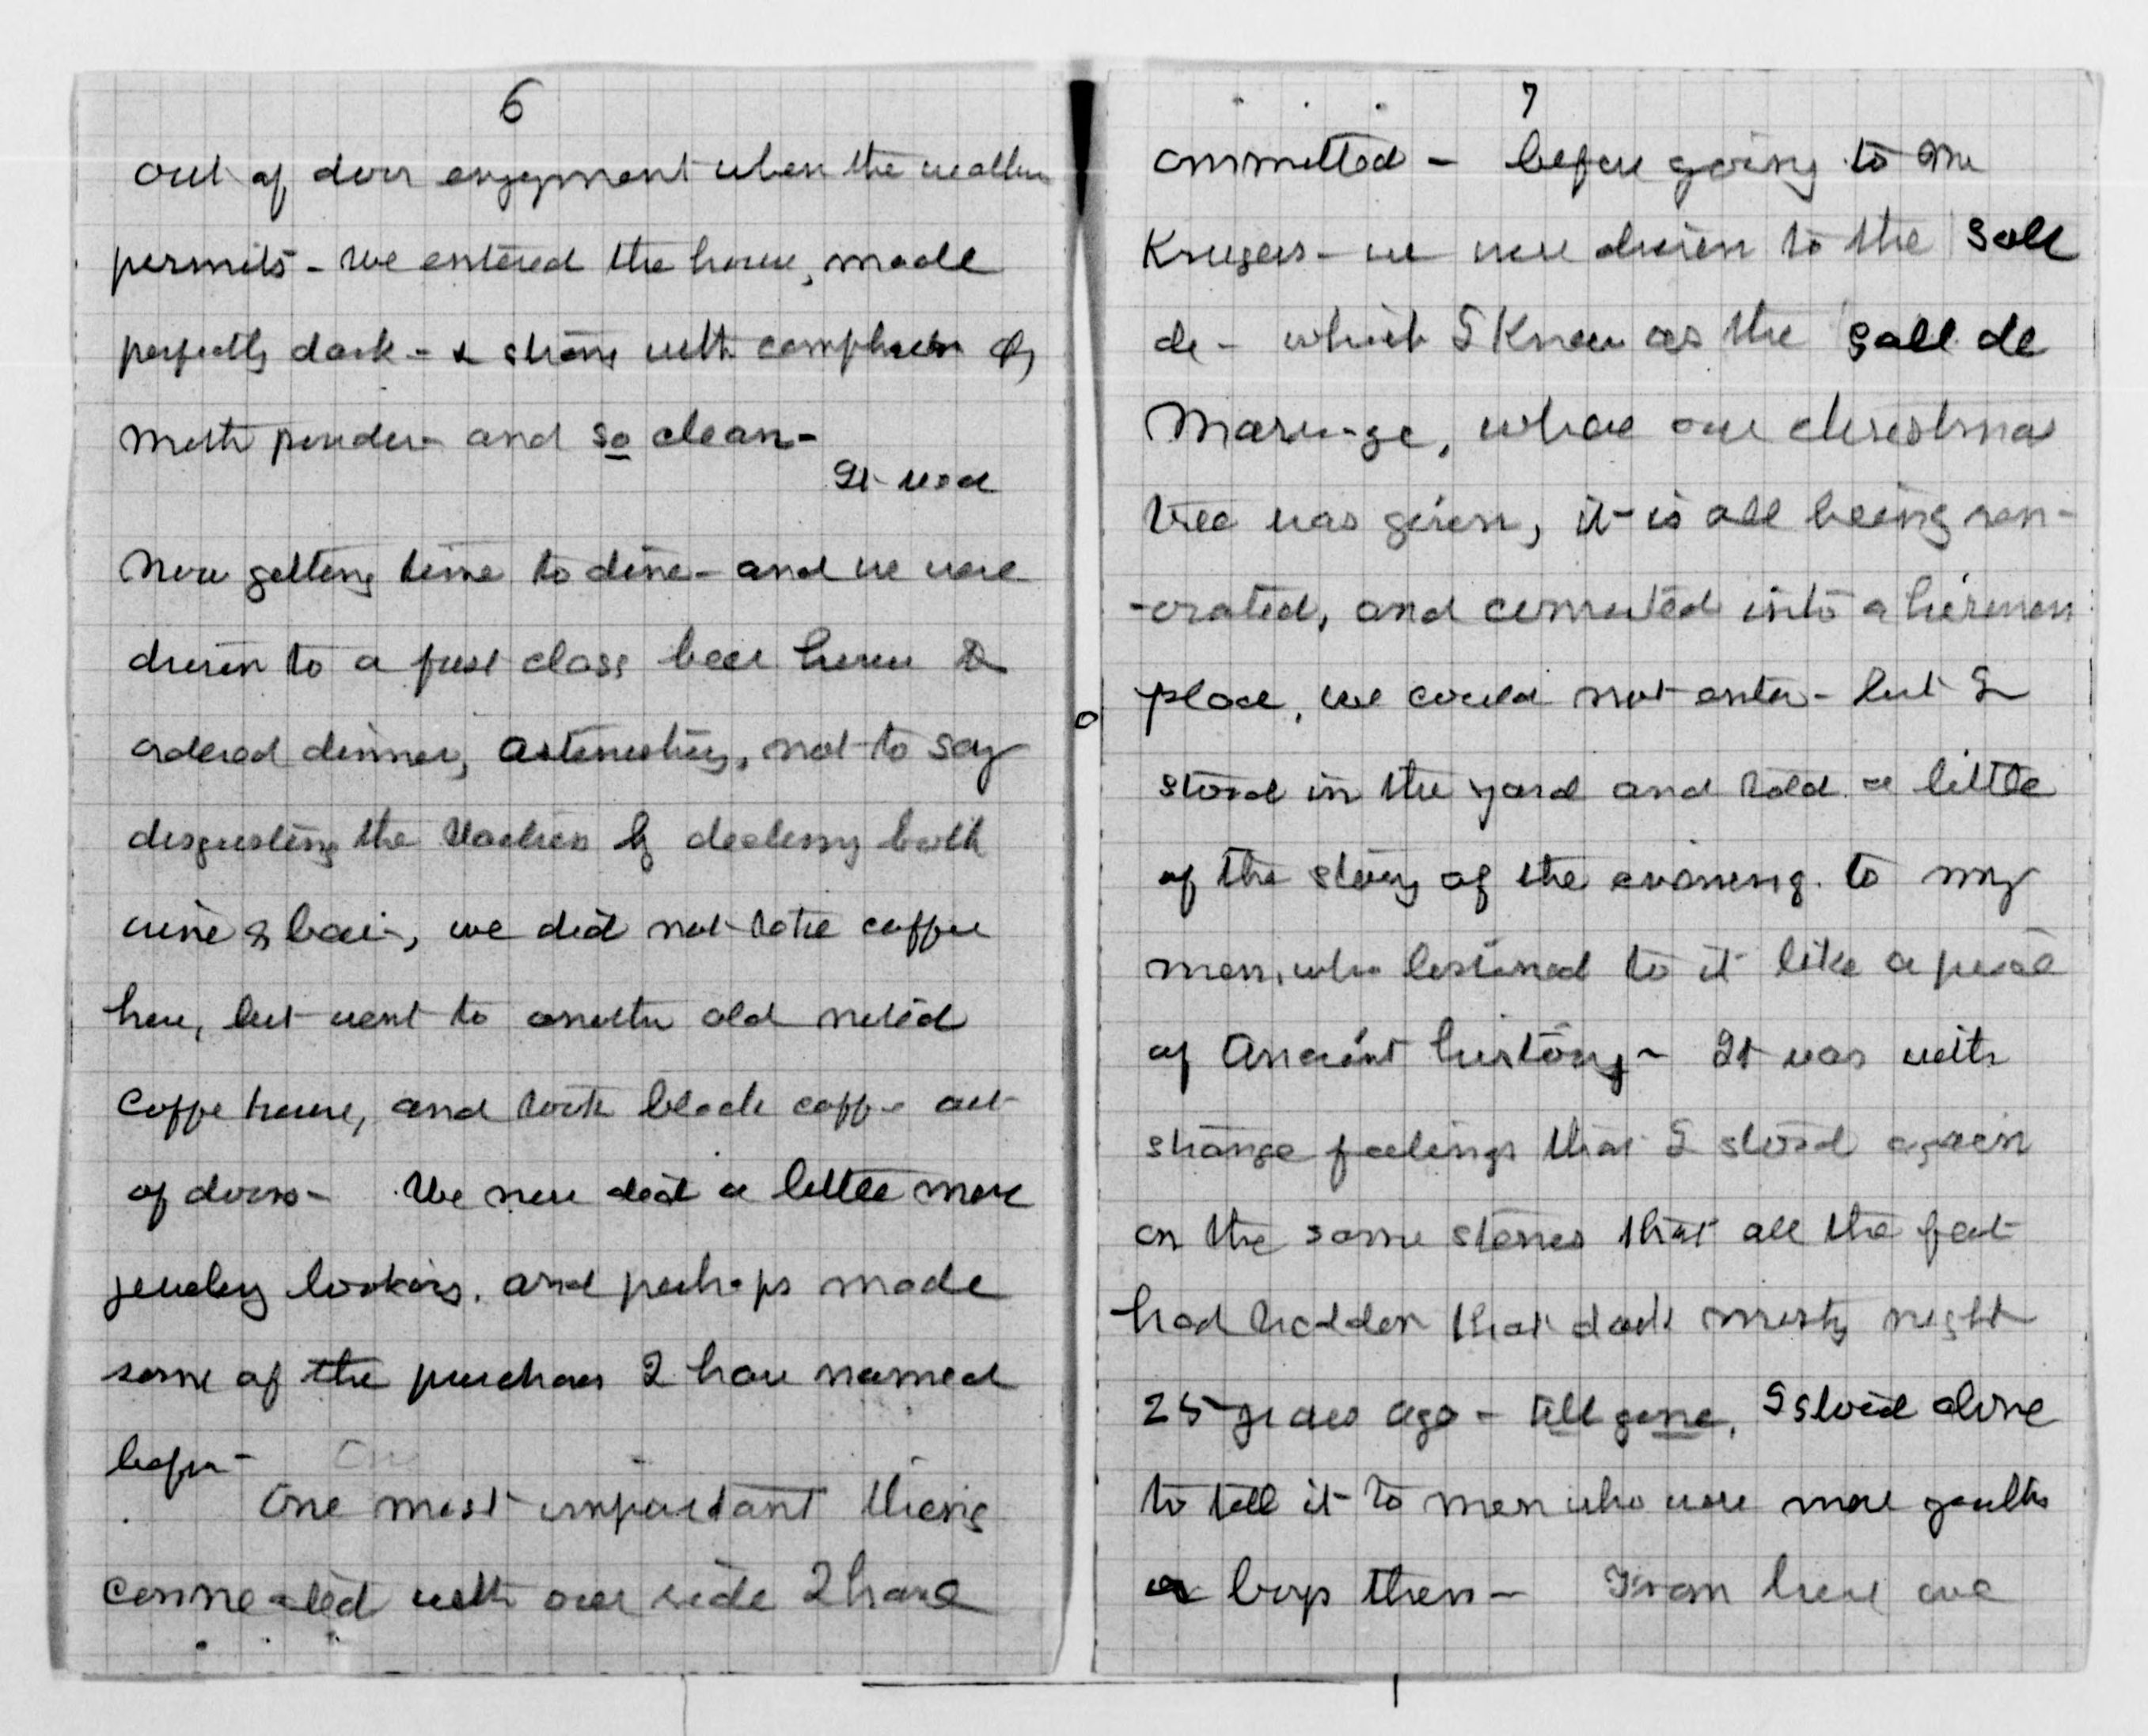 6
out of door enjoyment when the weather
permits - We entered the house, made
perfectly dark - & strong with camphor &
moth powder - and so clean -
It was
now getting time to dine - and we were
driven to a first class beer house &
ordered dinner, astonishing, not to say
disgusting the waiters by declining both
wine & beer, we did not take coffee
here, but went to another old noted
coffe house, and took black coffe out
of doors - We now did a little more
jewelry looking. and perhaps made
some of the purchases I have named
before -
One most important thing
connected with our ride I have
7
ommitted - before going to Mr
Krugers - we were driven to the Sall
de - which I knew as the Sall de
Mariage, where our christmas
tree was given, it is all being ren-
-ovated, and converted into a
place, we could not enter - but I
stood in the yard and told a little
of the story of the evening to my
men, who listened to it like a piece
of Ancient history - It was with
strange feelings that I stood again
on the same stones that all the feet
had trodden that dark misty night
25 years ago - all gone, I stood alone
to tell it to men who were mere youths
or boys then - From here we